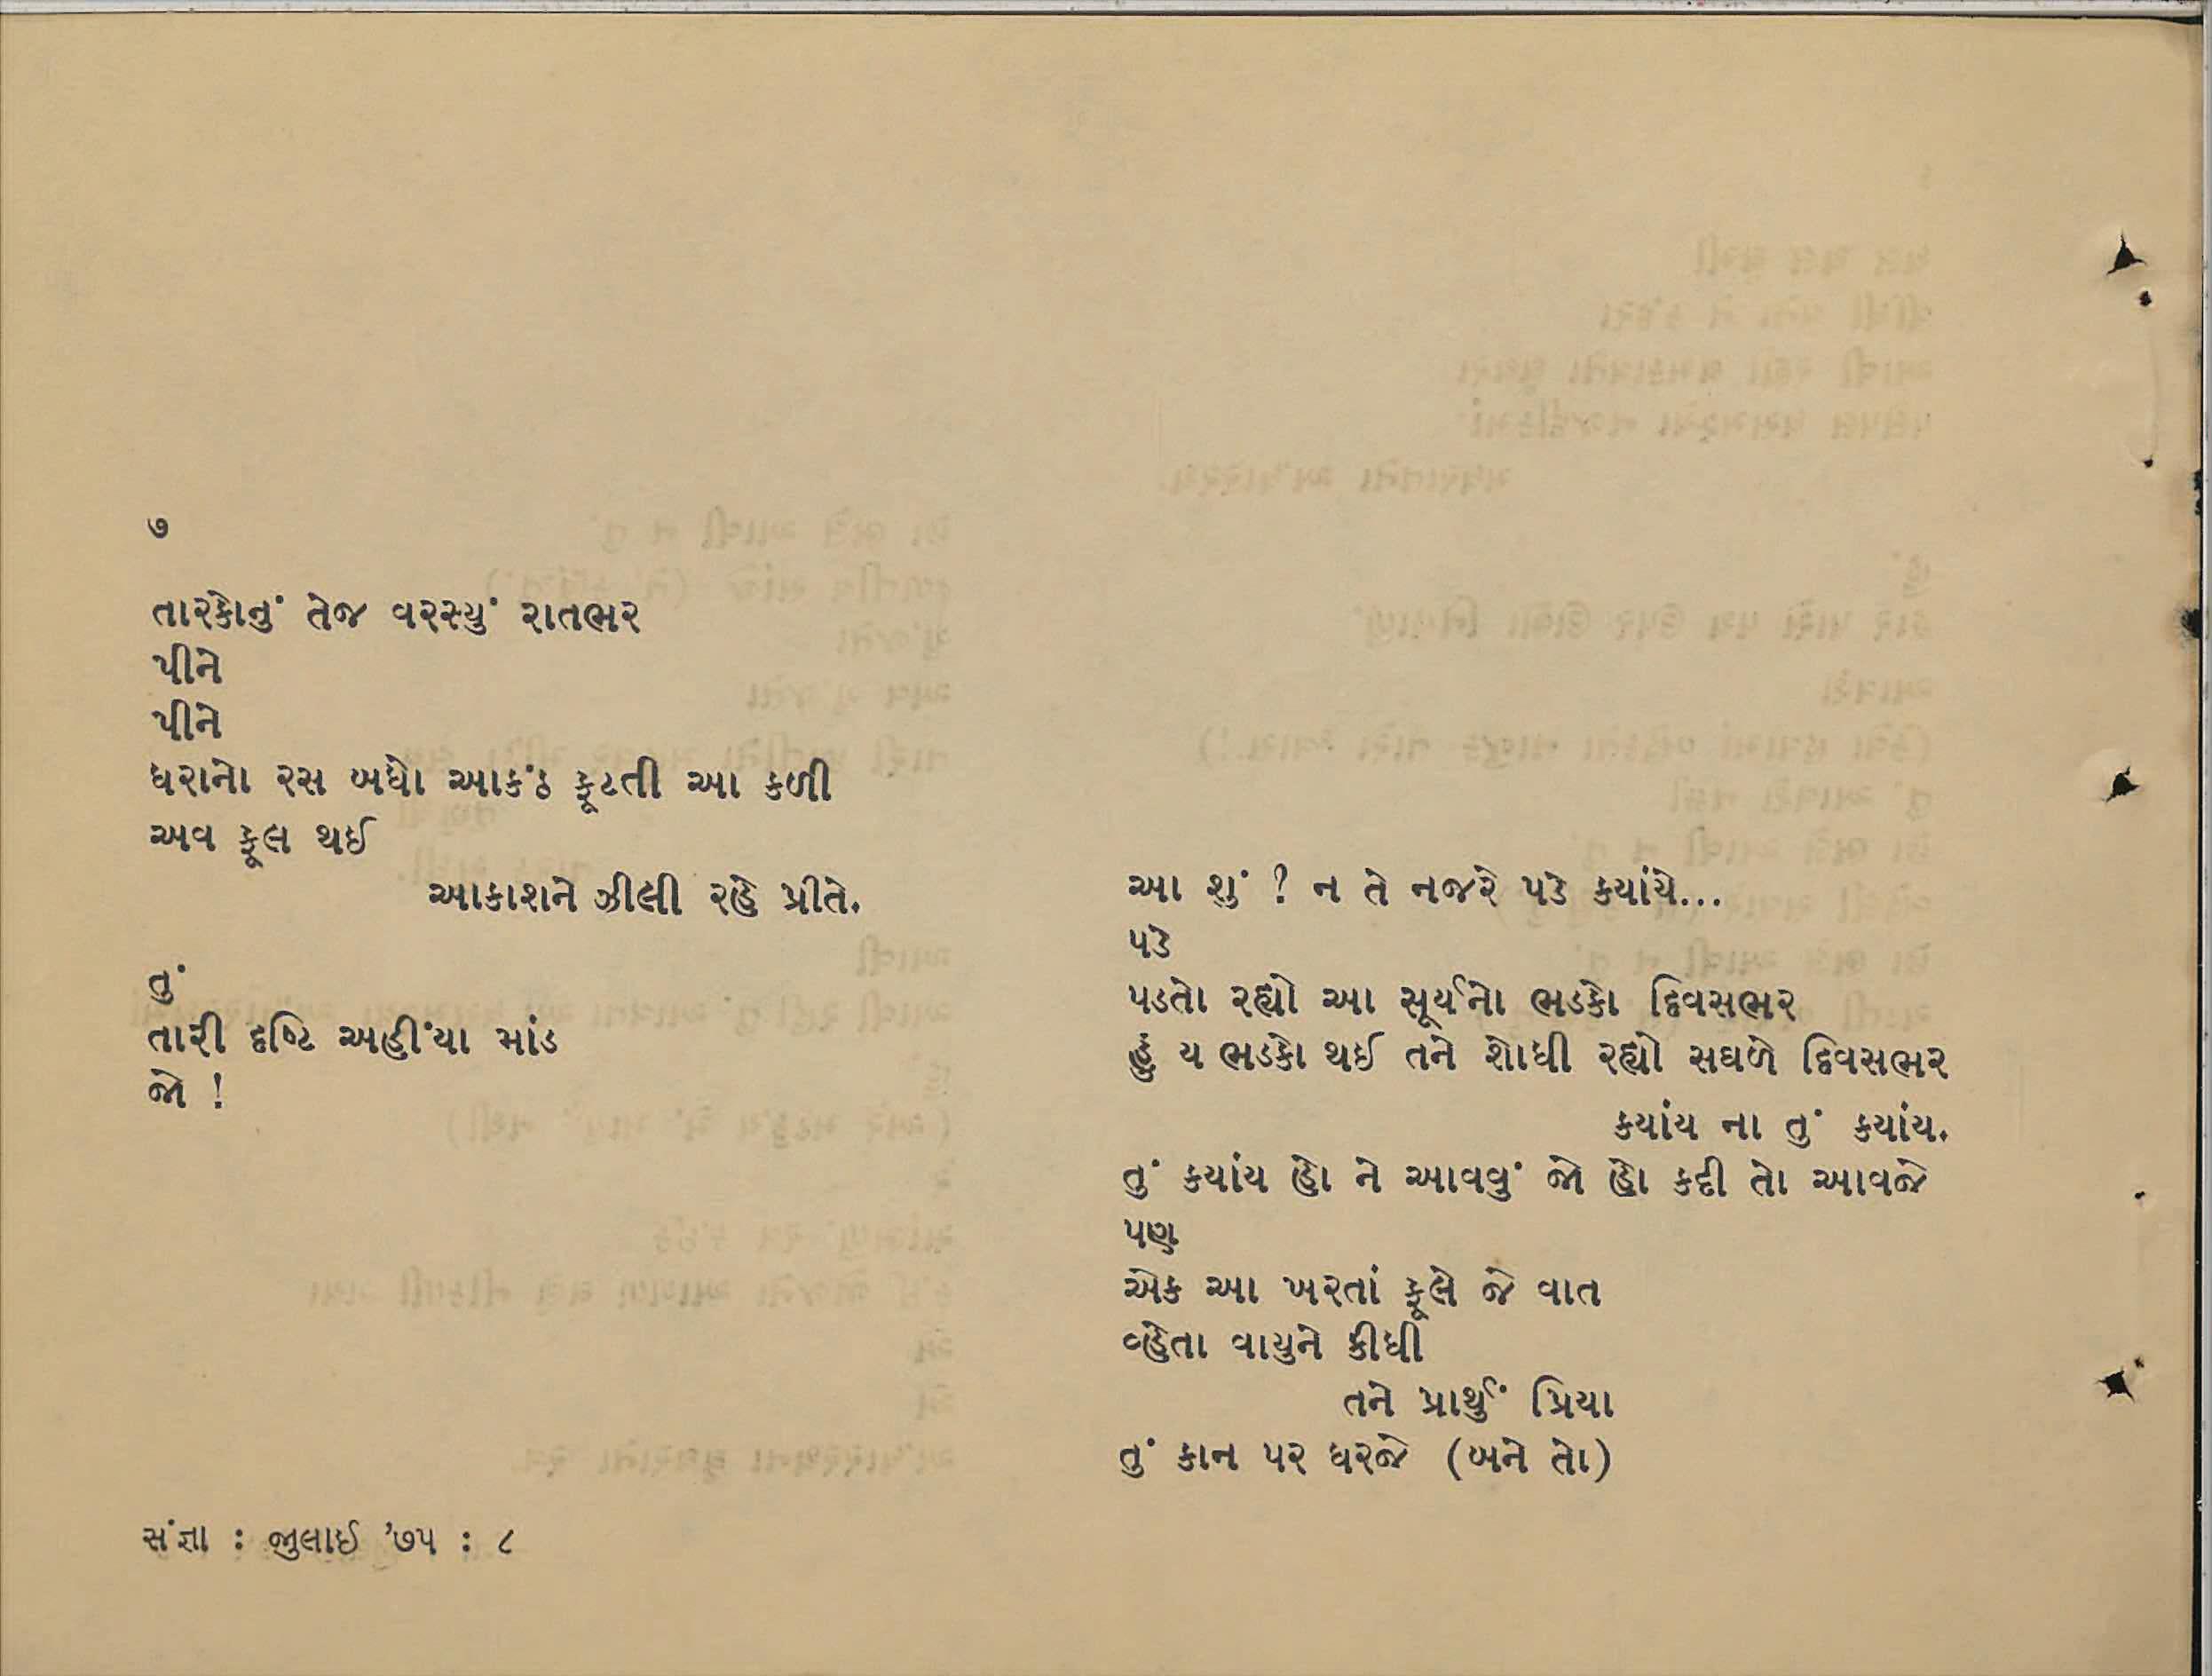 ૭
તારકોનું તેજ વરસ્યું રાતભર
પીને
પીને
ધરાનો રસ બધો આકંઠ ફૂટતી આ કળી
અવ ફૂલ થઈ
આકાશને ઝીલી રહે પ્રીતે.
તું
તારી દૃષ્ટિ અહીંયા માંડ
જો !
આ શું ? ન તે નજરે પડે કયાંયે...
પડે
પડતો રહ્યો આ સૂર્યનો ભડકો દિવસભર
હું ય ભડકો થઈ તને શોધી રહ્યો સઘળે દિવસભર
કયાંય ના તું કયાંય.
તું કયાંય હો ને આવવું જો હો કદી તો આવજે
પણ
એક આ ખરતાં ફૂલે જે વાત
વ્હેતા વાયુને કીધી
તને પ્રાર્થું પ્રિયા
તું કાન પર ધરજે (બને તો)
સંજ્ઞા : જુલાઈ '૭૫ : ૮